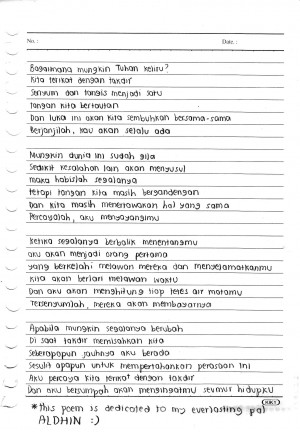 No.:
Date.:
Bagaimana mungkin Tuhan keliru?
Kita terikat dengan takdir
Senyum dan tangis menjadi satu
Tangan kita bertautan
Dan luka ini akan kita sembuhkan bersama-sama
Berjanjilah, kau akan selalu ada
Mungkin dunia ini sudah gila
Sedikit kesalahan lain akan menyusul
maka habislah segalanya
tetapi tangan kita masih bergandengan
Dan kita masih menertawakan hal yang sama
Percayalah, aku menyayangimu
Ketika segalanya berbalik menentangmu
aku akan menjadi orang pertama
yang berkelahi melawan mereka dan menyelamatkanmu
Kita akan berlari melawan waktu
Dan aku akan menghitung tiap tetes air matamu
Tersenyumlah, mereka akan membayarnya
Apabila mungkin segalanya berubah
Di saat takdir memisahkan kita
Seberapapun jauhnya aku berada
Sesulit apapun untuk mempertahankan perasaan ini
Aku percaya kita terikat dengan takdir
Dan aku bersumpah akan mengingatmu seumur hidupku
KIKY
*this poem is dedicated to my everlasting pal
ALDHIN :)